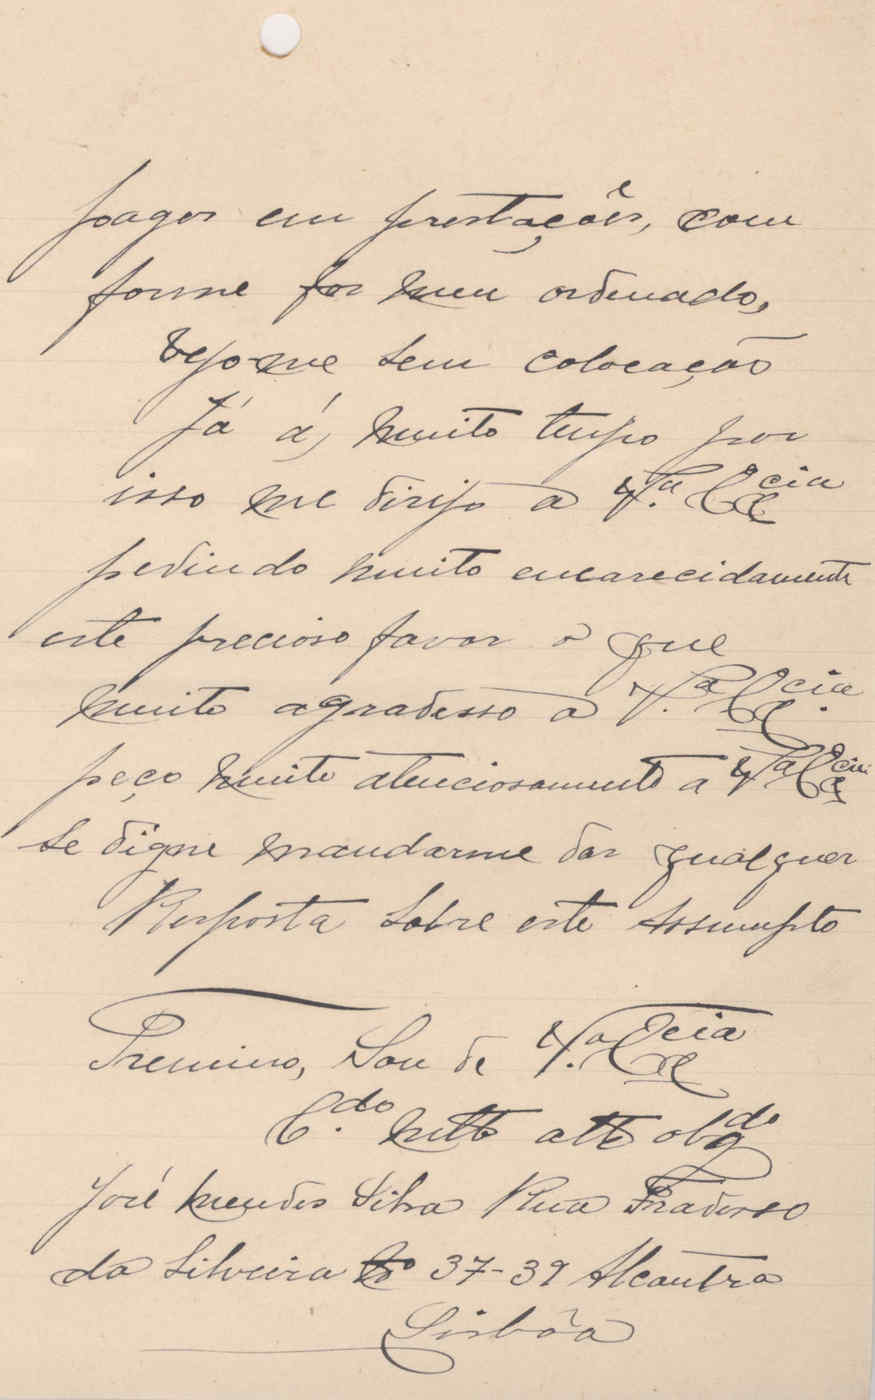 pagos em prestações, com
forme for meu ordenado,
vejo-me sem colocação
Já á, muito tempo por
isso me dirijo a V.ª Ex.cia
pedindo muito encarecidamente
este precioso favor o que
muito agradesso a V.ª Ex.cia
peço muito atenciosamente a V.ª Ex.cia
se digne mandarme dar qualquer
Resposta sobre este Assumpto
Tremino, Sou de V.ª Ex.cia
C.do mtto atto obgdo
José Mendes Silva Rua Pradesso
da Silveira No 37-39 Alcantra
Lisbôa